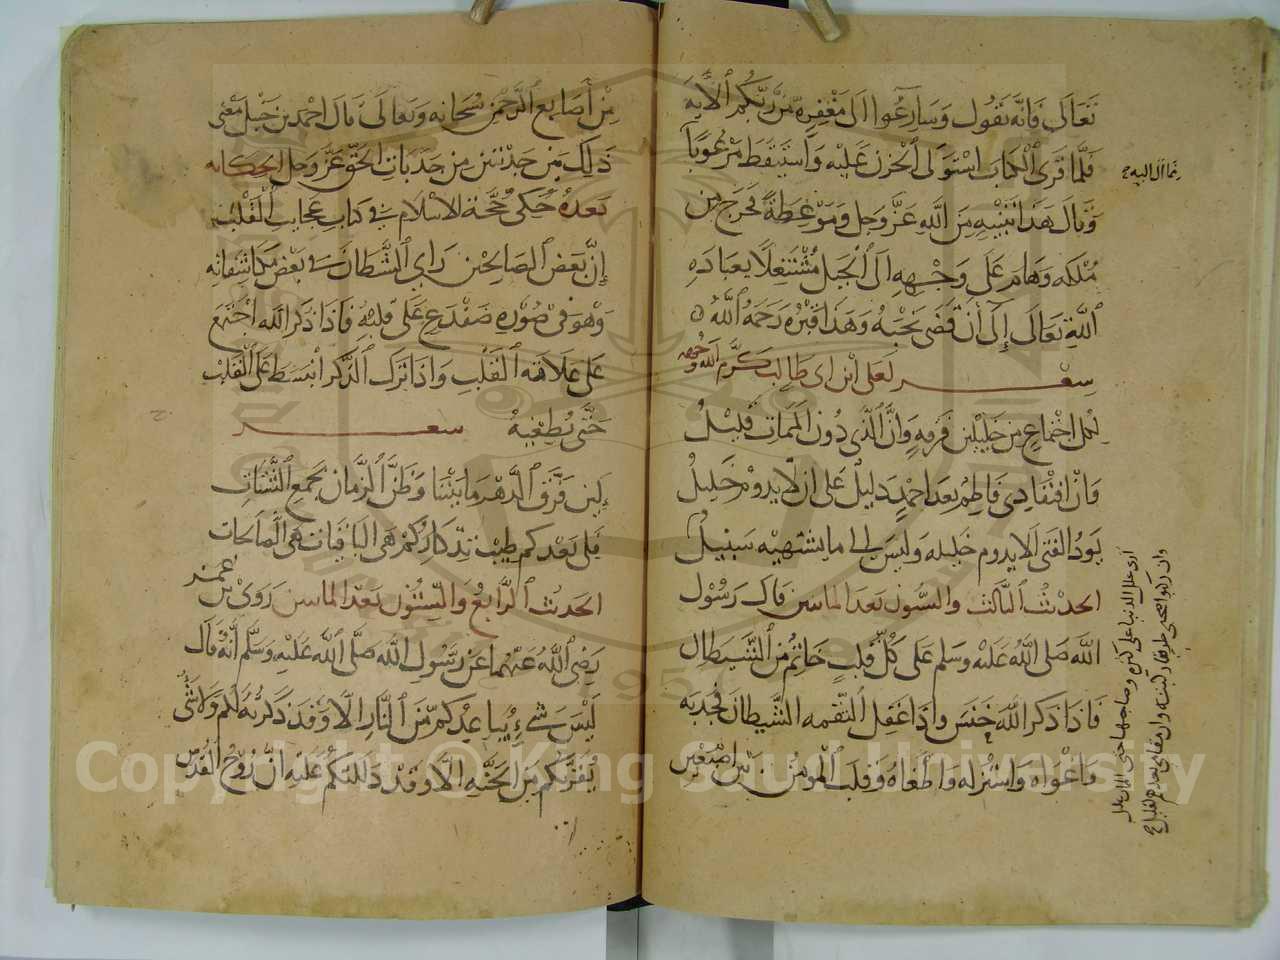 تعالى فانه يقول وسارعوا الى مغفرة من ربكم الآية
فلما قرى الكتاب استولى الحزن عليه واستيقظ مرعوبا
وقال هذا تنبيه من الله عز وجل وموعظة فخرج من
ملكه وهام على وجهه الى الجبل مشتغلا بعبادة
الله تعالى إلى أن قضى نحبه وهذا قبره رحمه الله
سعر لعلى ابن ابى طالب كرم الله وجهه
لكل اجتماع من خليلين فرقه وان الذى دون الممات قليل
وان افتقادى فاطم بعد احمد دليل على ان لا يدوم خليل
يود الفتى الا يدوم خليله وليس الى ما يشتهيه سبيل
الحديث الثالث والستون بعد المائتين قال رسول
الله صلى الله عليه وسلم على كل قلب خاتم من الشيطان
فاذا ذكر الله خنس واذا غفل التقمه الشيطان فجذبه
فاغواه واستزله واطغاه وقلب المومن بين اصبعين
ارى علل الدنيا على كثيرة وصاحبها حتى الممات عليل
من أصابع الرحمن سبحانه وتعالى قال احمد بن حنبل معنى
ذلك من جذبتين من جذبات الحق عز وجل الحكايه
بعده حكى حجة الاسلام فى كتاب عجايب القلب
إن بعض الصالحين راى الشيطان فى بعض مكاشفاته
وهو فى صورة ضفدع على قلبه فاذا ذكر الله اجتمع
على علاقه القلب واذا ترك الذكر انبسط على القلب
حتى يطغيه سعر
لين فرق الدهر ما بيننا وظن الزمان بجمع الشتات
فلى بعدكم طيب تذكاركم هى الباقيات هى الصالحات
الحديث الرابع والستون بعد المائتين روى بن عمر
رضى الله عنهما عن رسول الله صلى الله عليه وسلم أنه قال
ليس شى يباعدكم من النار الا وقد ذكرته لكم ولا شى
يقربكم من الجنه الا وقد دللتكم عليه ان روح القدس
Copyright © King Saud University
1957